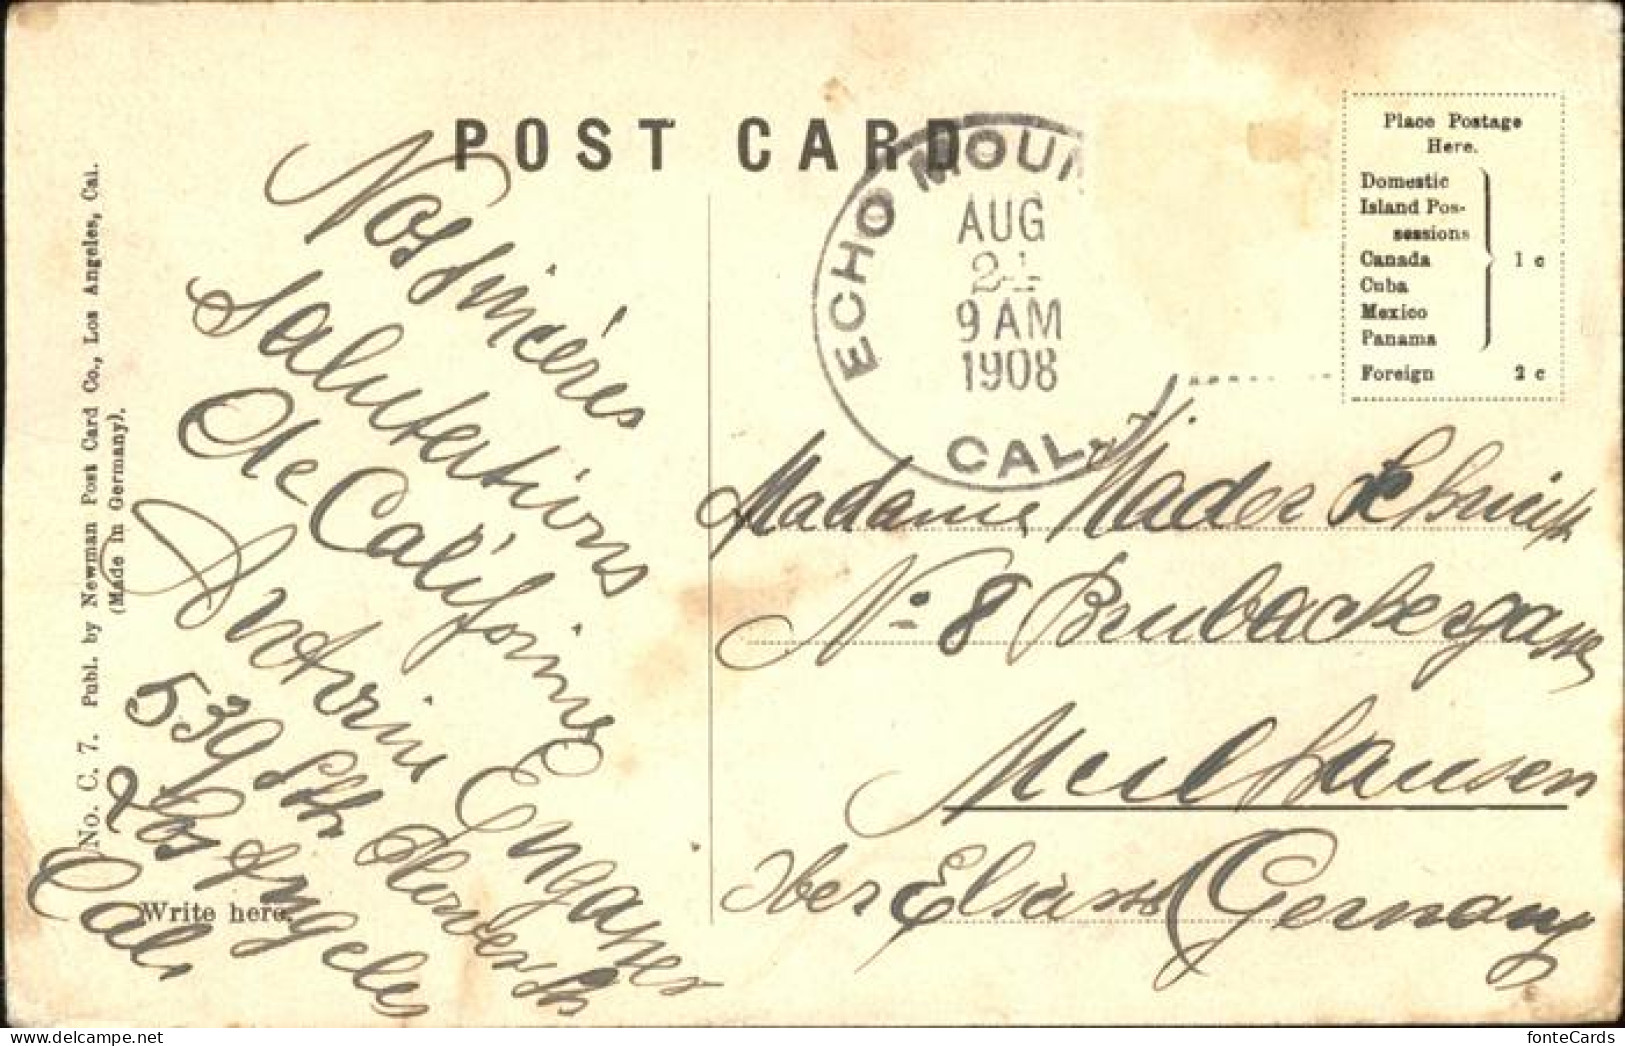 POST CARD
ECHO MOUN
AUG
24
9 AM
1908
CAL.
Place Postage
Here.
Domestic
Island Pos-
sessions
Canada
Cuba
Mexico
Panama
1 c
Foreign 2 c
No. C. 7. Publ. by Newman Post Card Co., Los Angeles, Cal.
(Made in Germany).
Nos sincéres
Salutations
de Californie
Engasser
539 Sth
Los Angeles
Cal.
Write here.
Madame Mader
No 8 Brubachergasse
Meulhausen
Ober Elsàss Germany
fonteCards